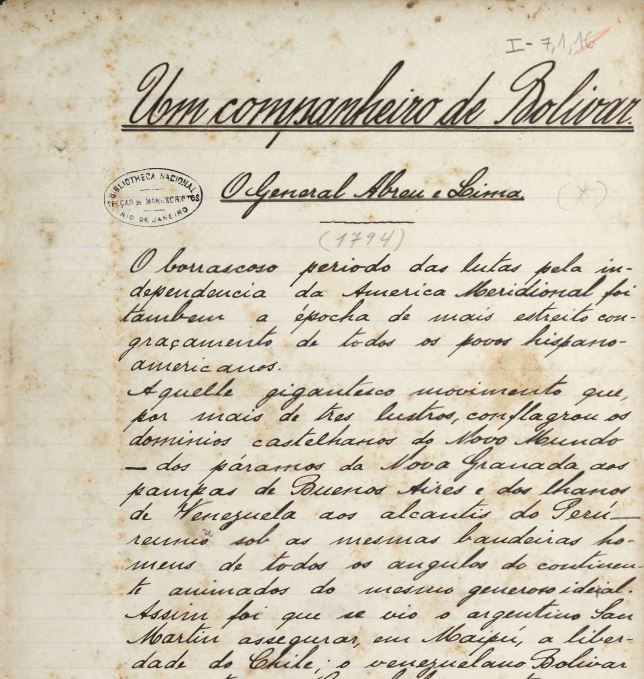 I-7,1,16
Um companheiro de Bolivar.
BIBLIOTHECA NACIONAL
SECÇÃO DE MANUSCRIPTOS
RIO DE JANEIRO
O General Abreu e Lima.
(*)
(1794)
O borrascoso periodo das lutas pela in-
dependencia da America Meridional foi
tambem a épocha de mais estreito con-
graçamento de todos os povos hispano-
americanos.
Aquelle gigantesco movimento que,
por mais de tres lustros, conflagrou os
dominios castelhanos do Novo Mundo
— dos páramos da Nova Granada aos
pampas de Buenos Aires e dos lhanos
de Venezuela aos alcantis do Perú —
reuniu sob as mesmas bandeiras ho-
mens de todos os angulos do continen-
te animados do mesmo generoso ideial.
Assim foi que se vio o argentino San
Martin assegurar, em Maipú, a liber-
dade do Chile; o venezuelano Bolivar